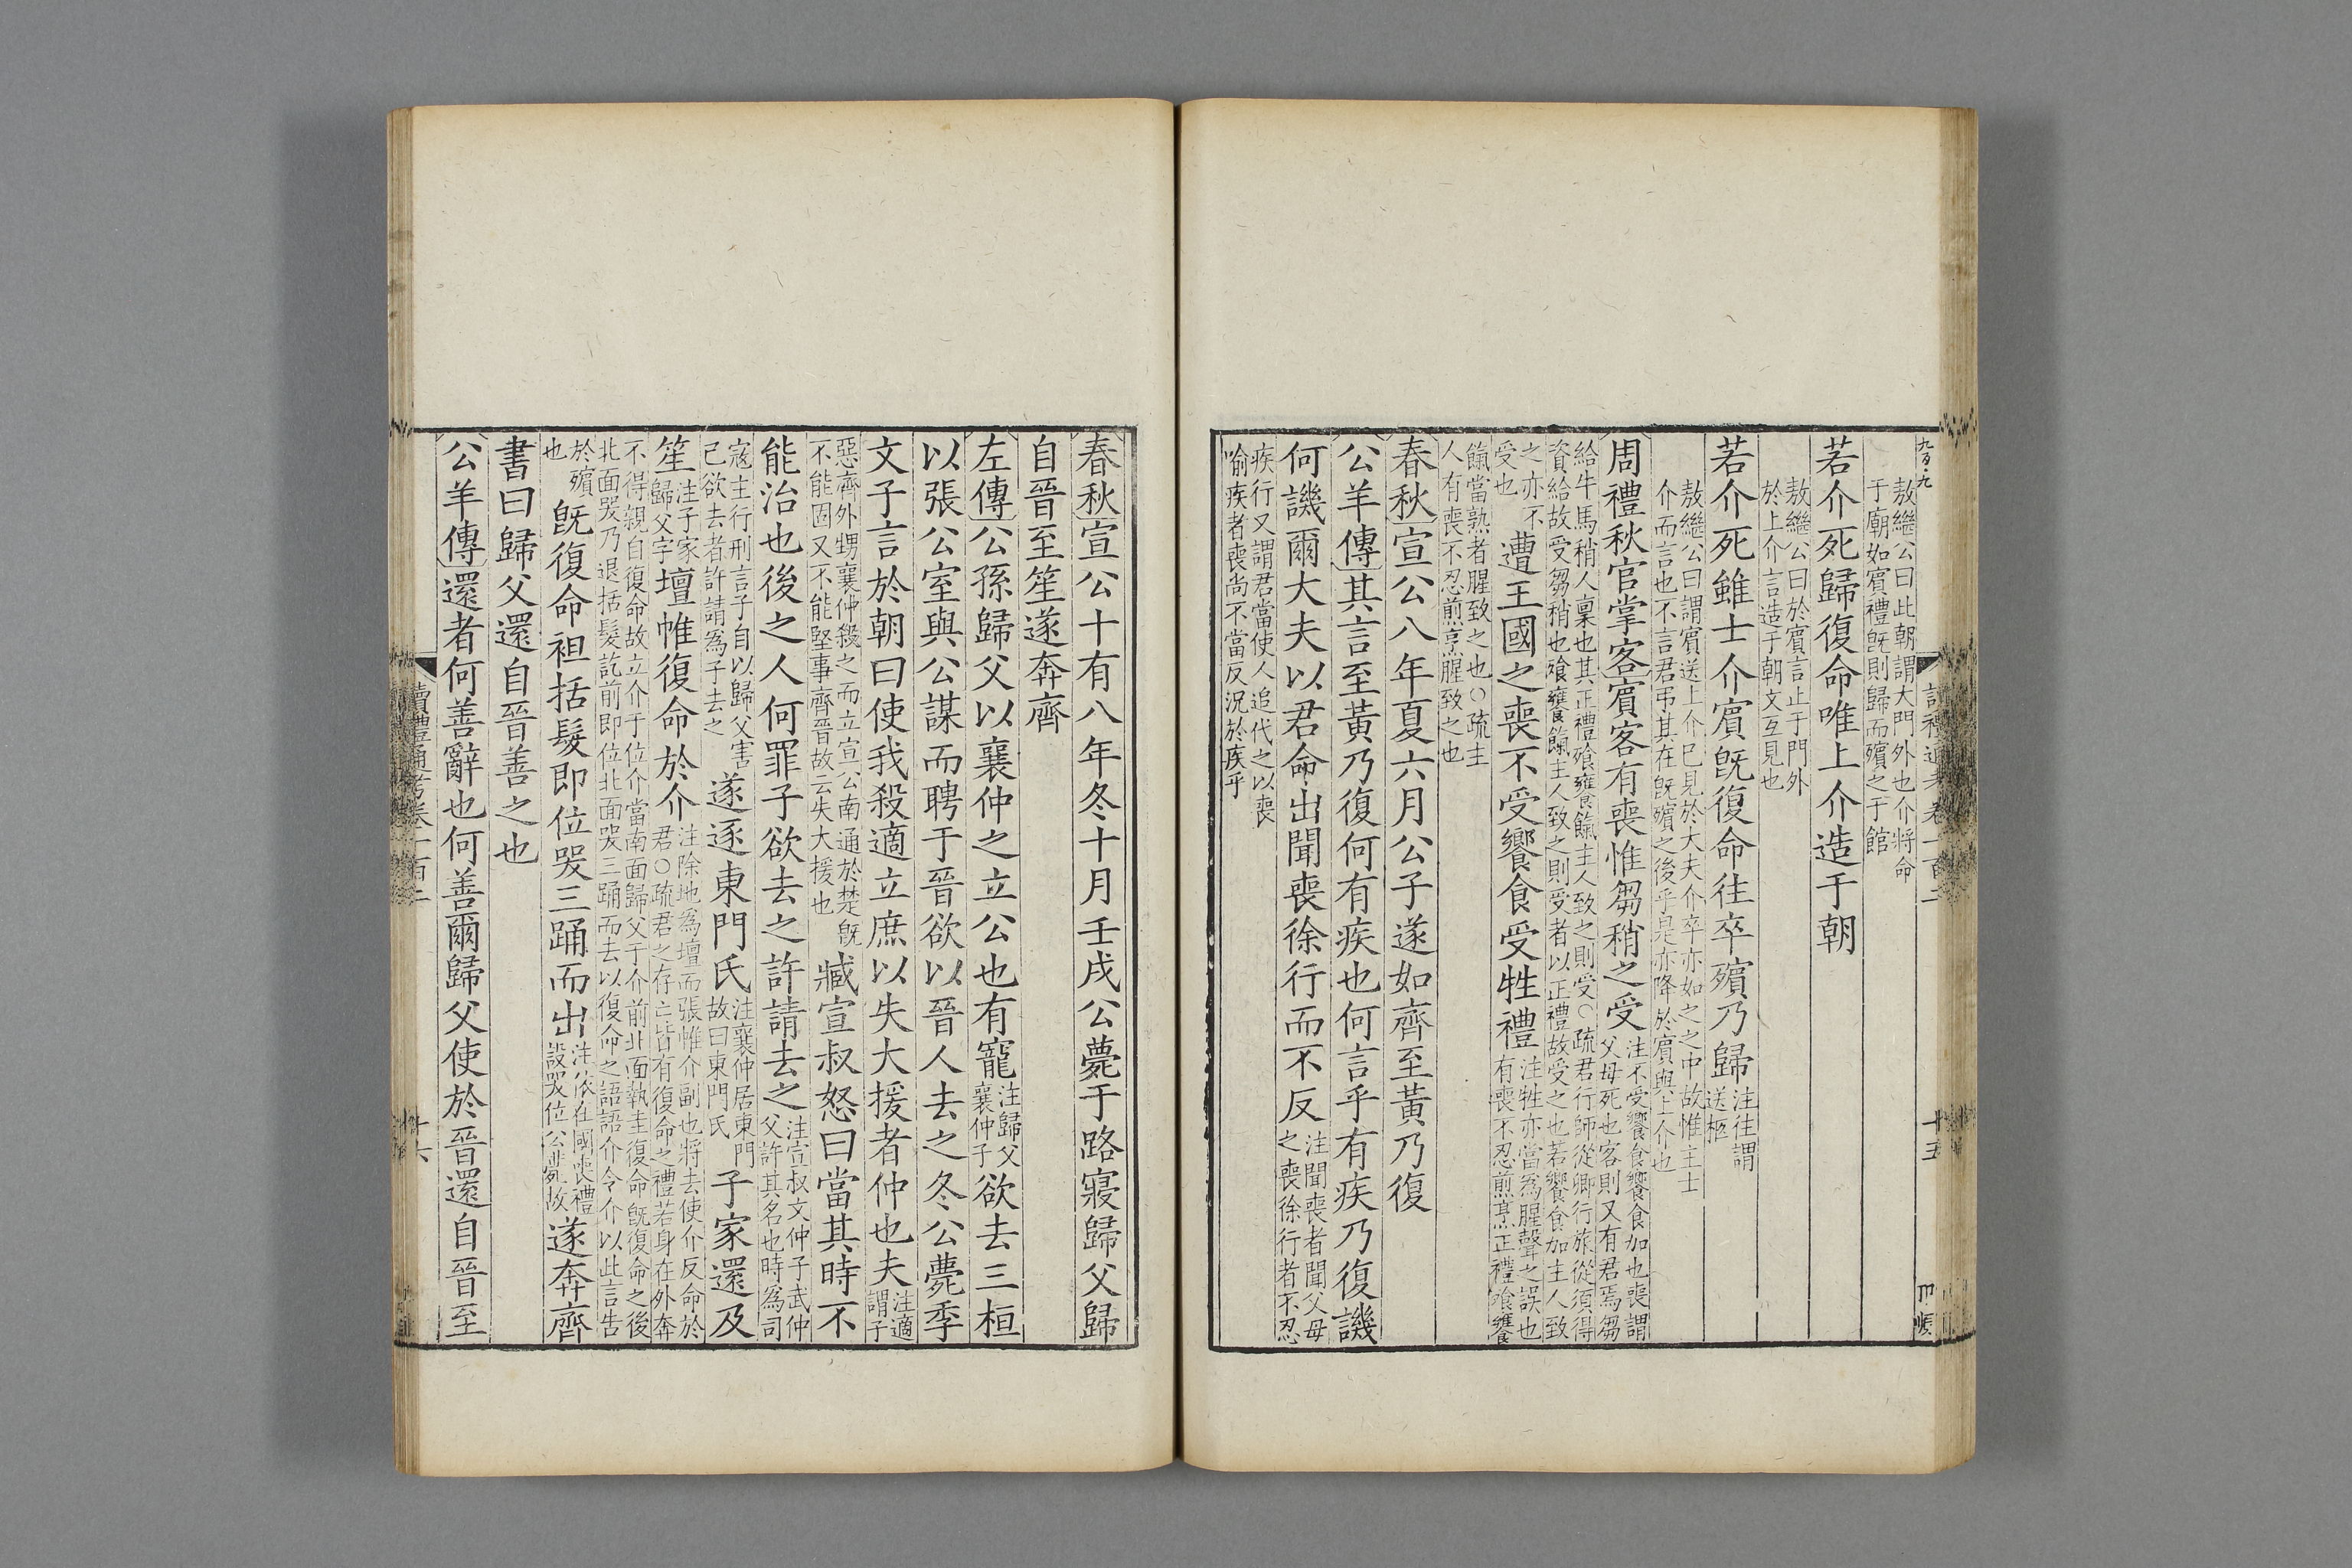 敖繼公曰此朝謂大門外也介將命
于廟如賓禮旣則歸而殯之于館
若介死歸復命唯上介造于朝
敖繼公曰於賓言止于門外
於上介言造于朝文互見也
若介死雖士介賓旣復命往卒殯乃歸注往謂
送柩
敖繼公曰謂賓送上介已見於大夫介卒亦如之之中故惟主士
介而言也不言君弔其在旣殯之後乎是亦降於賓與上介也
周禮秋官掌客賓客有喪惟芻稍之受注不受饗食饗食加也喪謂
父母死也客則又有君焉芻
給牛馬稍人稟也其正禮飧饔餼主人致之則受○疏君行師從卿行旅從須得
資給故受芻稍也飧饔餼主人致之則受者以正禮故受之也若饗食加主人致
之亦不
受也
遭王國之喪不受饗食受牲禮注牲亦當爲腥聲之誤也
有喪不忍煎烹正禮飧饔
餼當熟者腥致之也○疏主
人有喪不忍煎烹腥致之也
春秋宣公八年夏六月公子遂如齊至黃乃復
公羊傳其言至黃乃復何有疾也何言乎有疾乃復譏
何譏爾大夫以君命出聞喪徐行而不反注聞喪者聞父母
之喪徐行者不忍
疾行又謂君當使人追代之以喪
喻疾者喪尚不當反況於疾乎
十五
春秋宣公十有八年冬十月壬戌公薨于路寢歸父歸
自晉至笙遂奔齊
左傳公孫歸父以襄仲之立公也有寵注歸父
襄仲子欲去三桓
以張公室與公謀而聘于晉欲以晉人去之冬公薨季
文子言於朝曰使我殺適立庶以失大援者仲也夫注適
謂子
惡齊外甥襄仲殺之而立宣公南通於楚旣
不能固又不能堅事齊晉故云失大援也
臧宣叔怒曰當其時不
能治也後之人何罪子欲去之許請去之注宣叔文仲子武仲
父許其名也時爲司
寇主行刑言子自以歸父害
己欲去者許請爲子去之
遂逐東門氏注襄仲居東門
故曰東門氏子家還及
笙注子家
歸父字壇帷復命於介注除地爲壇而張帷介副也將去使介反命於
君○疏君之存亡皆有復命之禮若身在外奔
不得親自復命故立介于位介當南面歸父于介前北面執圭復命旣復命之後
北面哭乃退括髮訖前即位北面哭三踊而去以復命之語語介令介以此言告
於殯
也
旣復命袒括髮即位哭三踊而出注依在國喪禮
設哭位公薨故遂奔齊
書曰歸父還自晉善之也
公羊傳還者何善辭也何善爾歸父使於晉還自晉至
讀禮通考卷一百二
十六